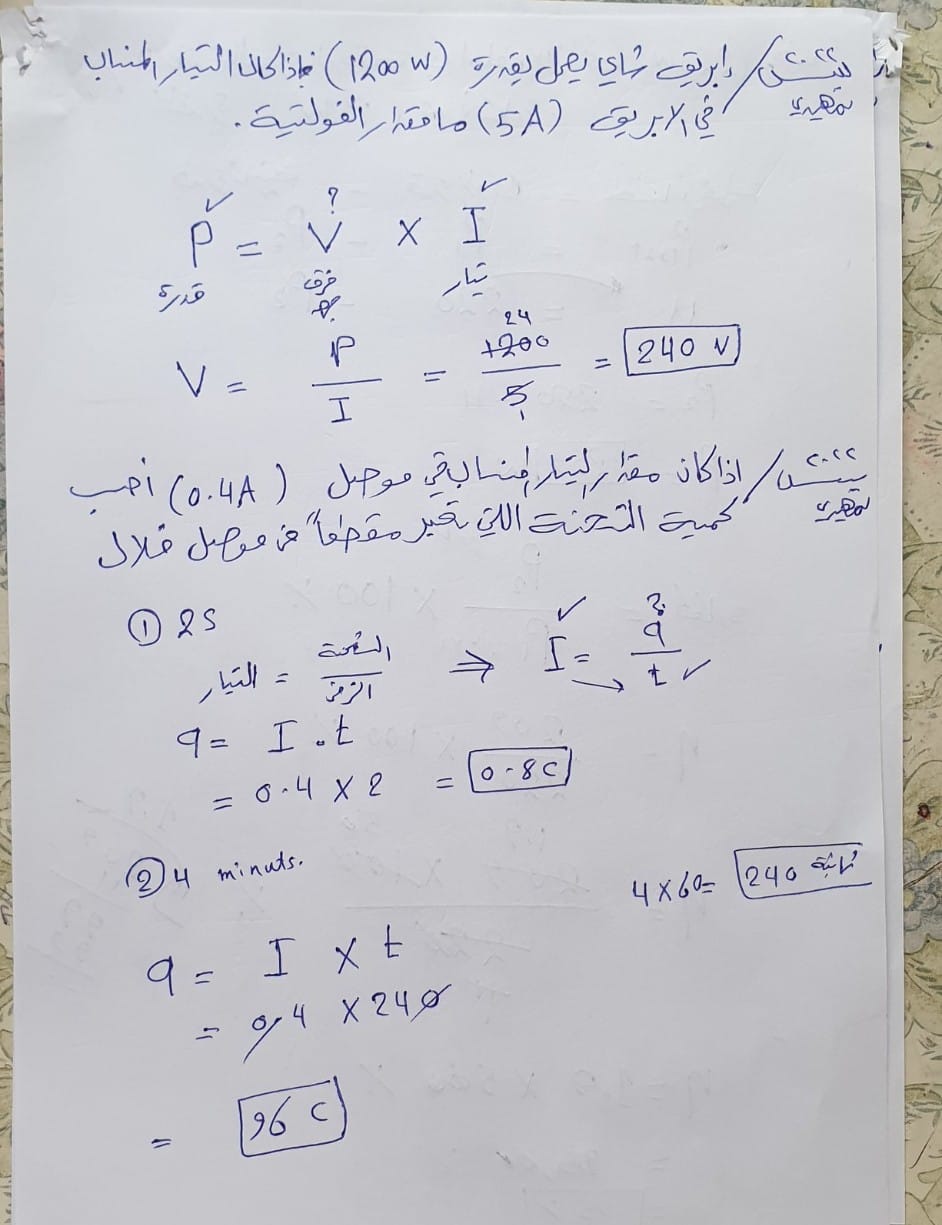 ٢٠٢٢ تمهيدي س/ ابريق شاي يعمل بقدرة (1200 W) فاذا كان التيار المنساب
في الابريق (5A) ما مقدار الفولتية .
✓ ? ✓
P = V × I
قدرة فرق جهد تيار
V = P/I = 1200/5 = 240 V
24
1
٢٠٢٢ تمهيدي س/ اذا كان مقدار التيار المنساب في موصل (0.4A) احسب
كمية الشحنة اللتي تعبر مقطعاً من موصل خلال
① 2S
التيار = الشحنة/الزمن ⇒ I = q/t
✓ ? ✓
q = I . t
= 0.4 × 2 = 0.8 C
② 4 minuts.
4×60= 240 ثانية
q = I × t
= 0.4 × 240
= 96 C